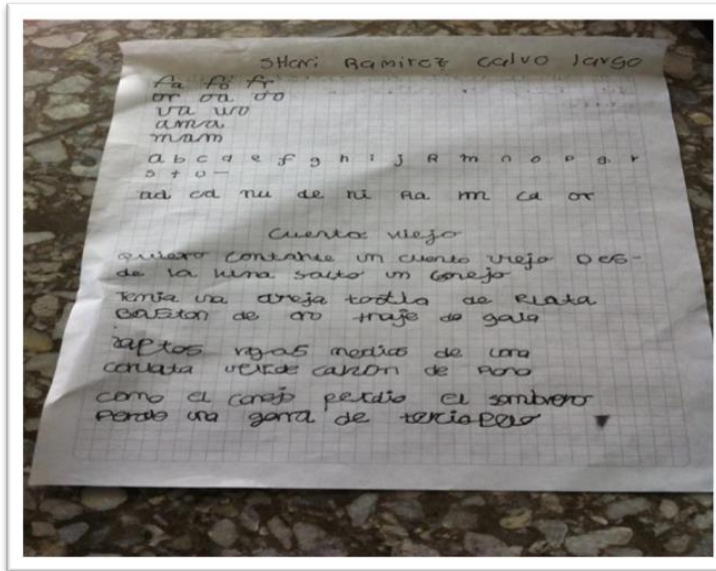 SHari Ramirez calvo largo
fa fo fr
or oa oo
va uo
ama
mam
a b c d e f g h i j R m n o p q r
s t u
ad cd nu de ni Ra m ca or
cuento viejo
quiero contarte un cuento viejo Des-
de la luna salto un conejo
Tenia una oreja de Plata
Baston de oro traje de gala
medias de lana
verde de
como el conejo perdio el sombrero
una gorra de terciopelo